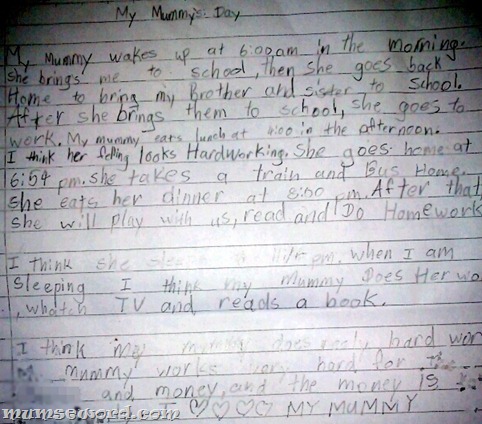 My Mummy's Day
My Mummy wakes up at 6:00am in the morning.
She brings me to school, then she goes back
Home to bring my Brother and sister to school.
After she brings them to school, she goes to
work. My mummy eats lunch at 4:00 in the afternoon.
I think her looks Hardworking. She goes home at
6:54 pm. she takes a train and Bus Home.
She eats her dinner at 8:00 pm. After that
she will play with us, read and Do Homework
I think she pm. when I am
Sleeping I think my Mummy Does Her wo
, whatch TV and reads a book.
I think my mummy does realy hard wor
mummy works very hard for
and money, and the money is
I ♡♡♡♡ MY MUMMY
mumseword.com